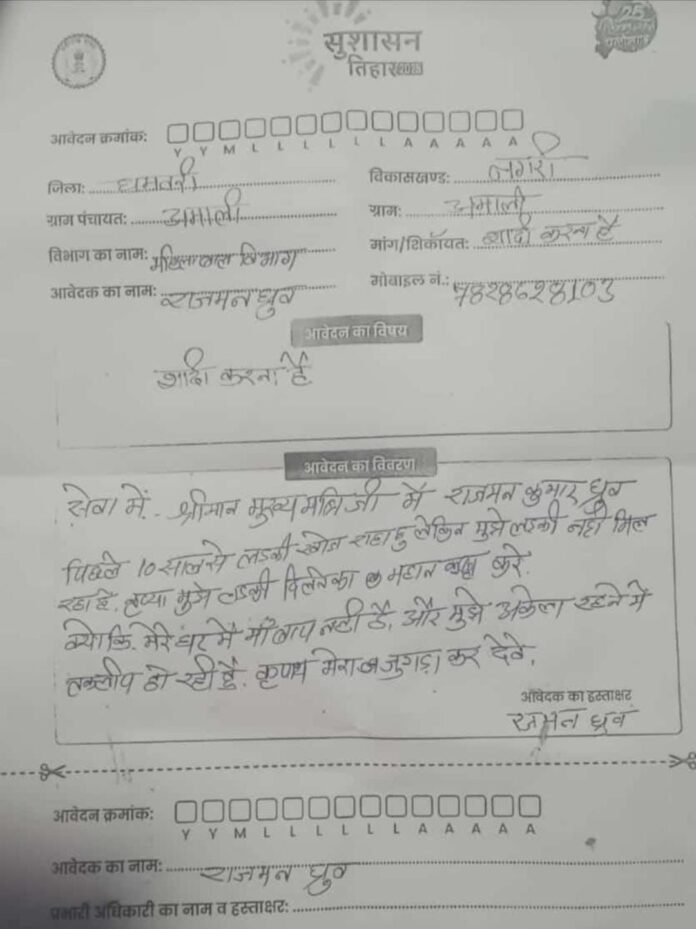 सुशासन
तिहार
आवेदन क्रमांक:
Y Y M L L L L L L A A A A A
जिला: धमतरी विकासखण्ड: नगरी
ग्राम पंचायत: अमाली ग्राम: अमाली
विभाग का नाम: महिला बाल विभाग मांग/शिकॉयत: शादी करना है
आवेदक का नाम: राजमन ध्रुव मोबाइल नं.:
आवेदन का विषय
शादी करना है
आवेदन का विवरण
सेवा में. श्रीमान मुख्यमंत्रिजी मै राजमन कुमार ध्रुव
पिछले 10 साल से लडकी खोज राहा हु लेकिन मुझे लडकी नही मिल
रहा है. मुझे लडकी दिलनेका महान करे.
क्योकि. मेरे घर मै माँ बाप नही है. और मुझे अकेला रहने मे
तकलीप हो रही है. कृपया मेरा जुगाड़ा कर देवे.
आवेदक का हस्ताक्षर
राजमन ध्रुव
आवेदन क्रमांक:
Y Y M L L L L L L A A A A A
आवेदक का नाम: राजमन ध्रुव
प्रभारी अधिकारी का नाम व हस्ताक्षर: